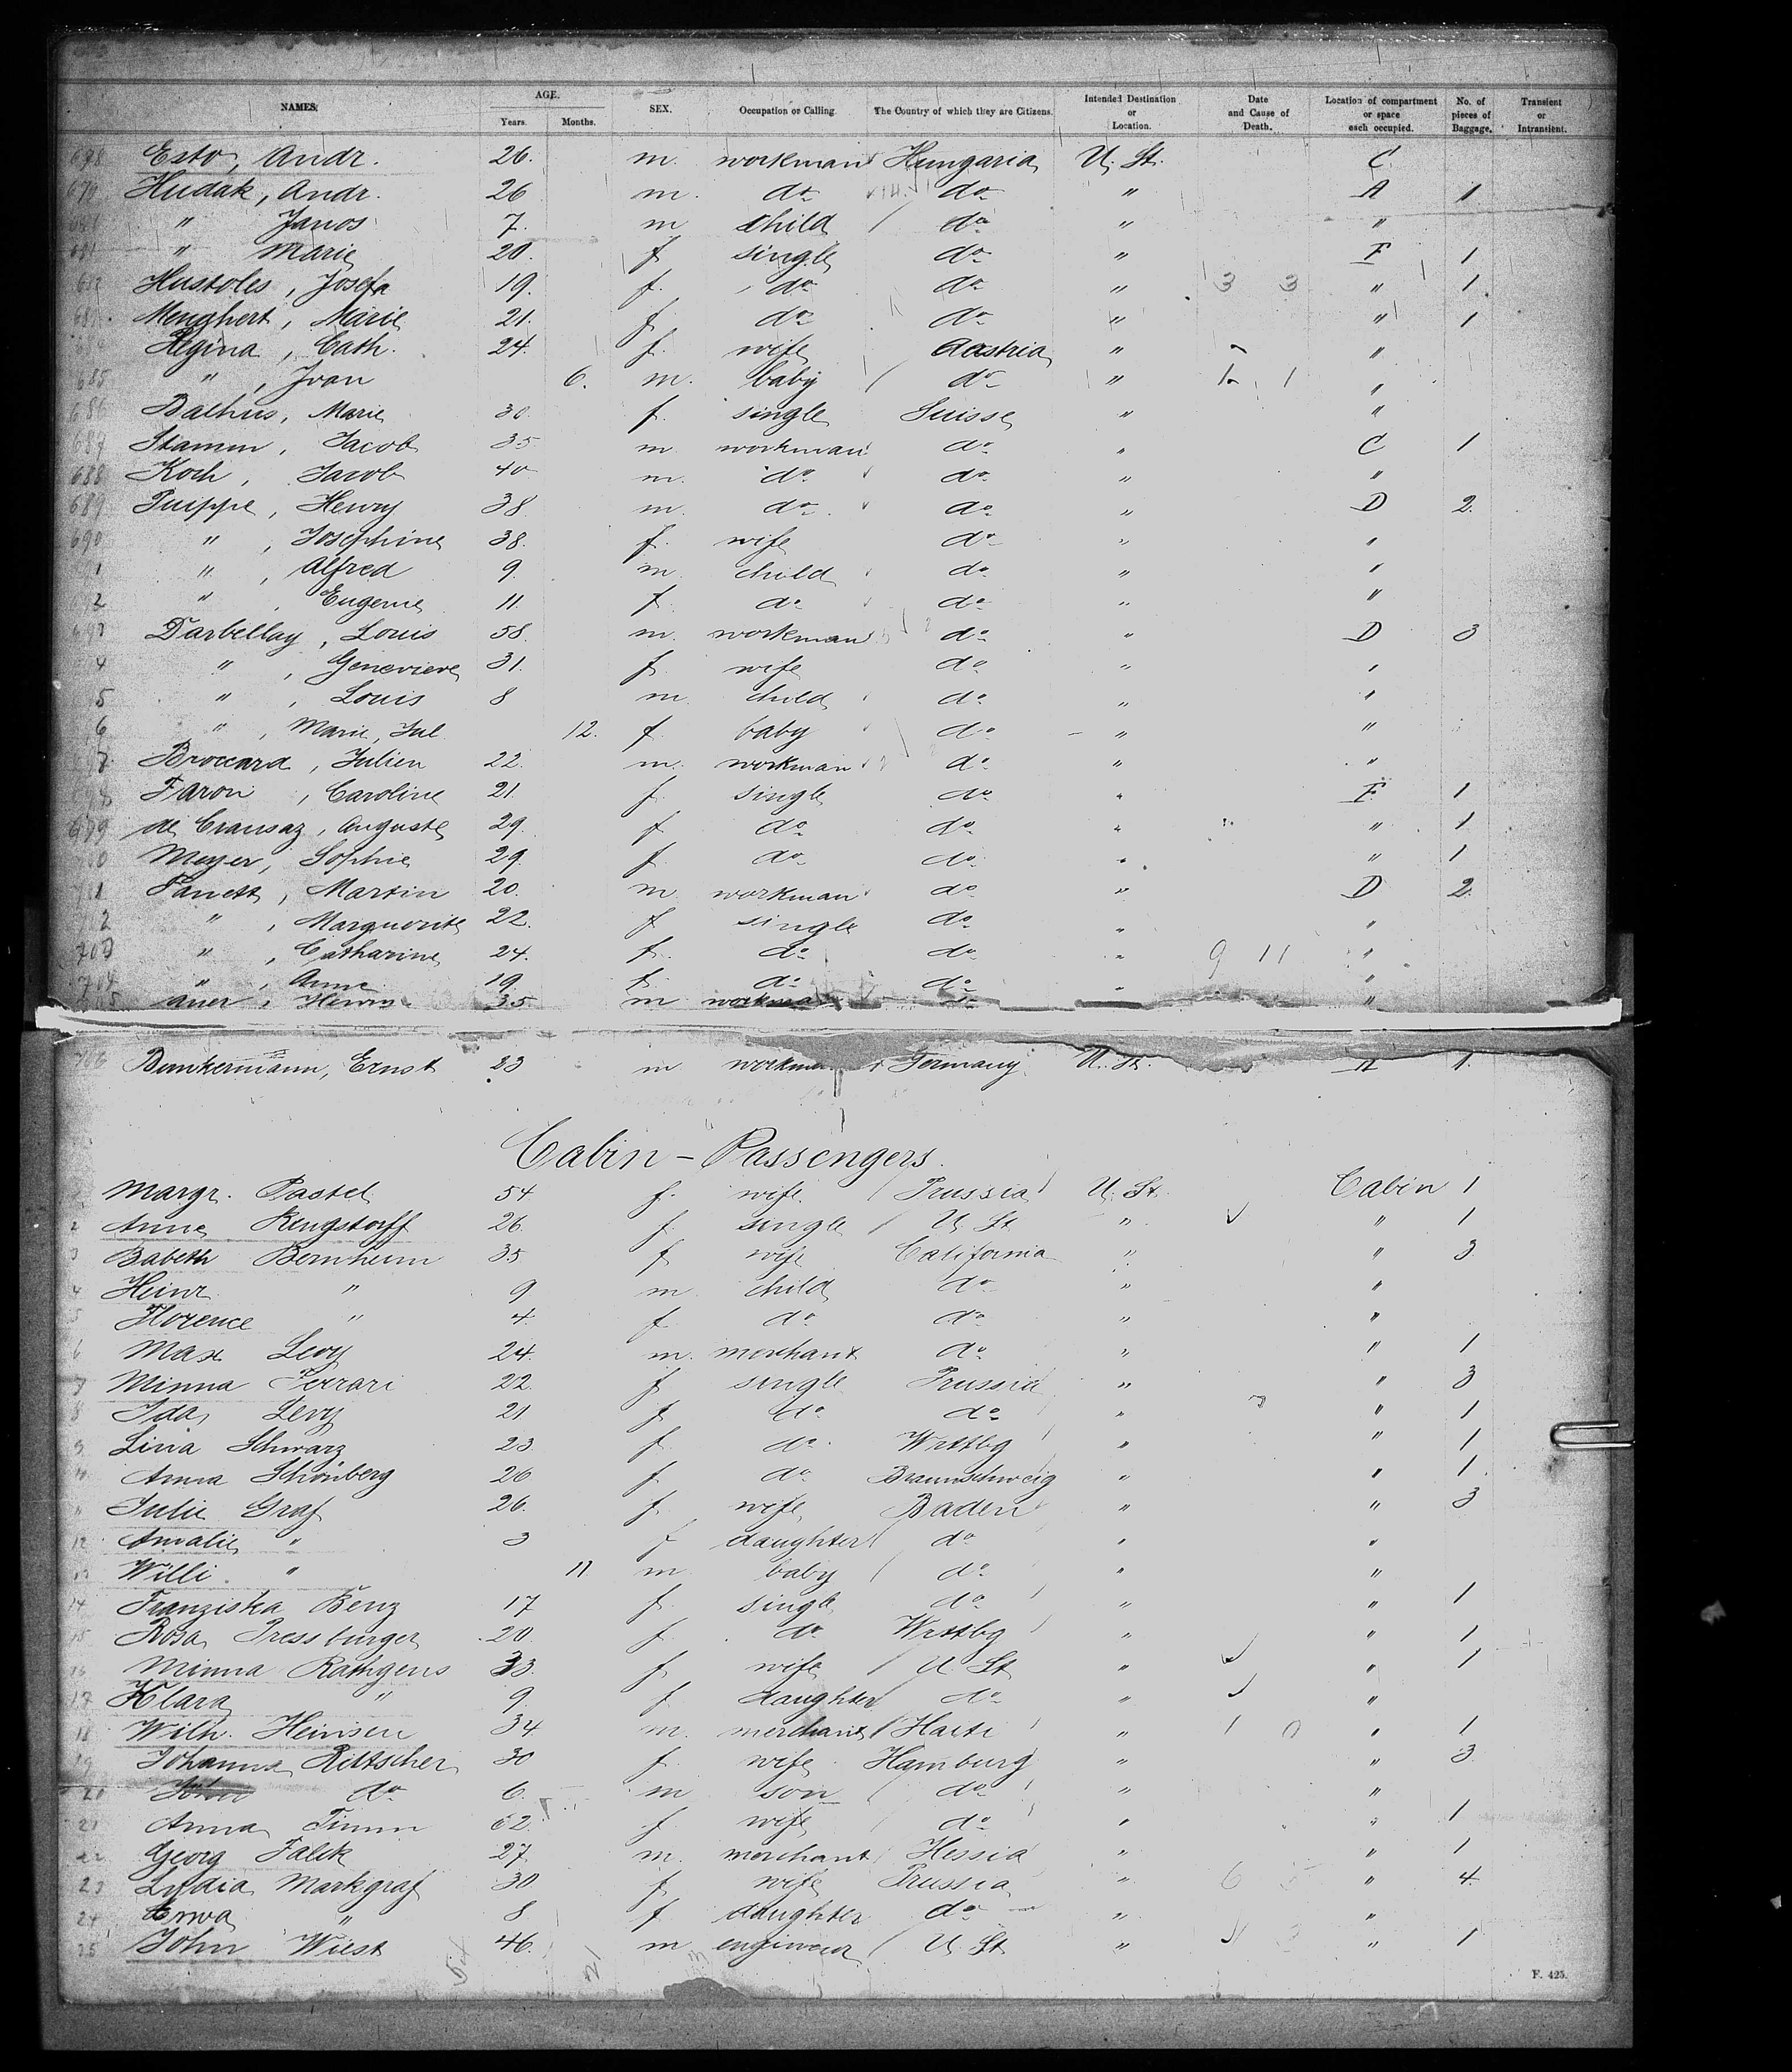 NAMES. AGE. Years. Months. SEX. Occupation or Calling The Country of which they are Citizens. Intended Destination or Location. Date and Cause of Death. Location of compartment or space each occupied. No. of pieces of Baggage. Transient or Intransient.
Esto, Andr. 26. m. workman Hungaria U. St. C
Hudak, Andr. 26 m. do do " A 1
" Janos 7. m child do " "
" Marie 20. f single do " F 1
Hustoles, Josefa 19. f. do do " " 1
Menghert, Marie 21. f do do " " 1
Regina, Cath. 24. f. wife Austria " "
685 ", Ivan 6. m. baby do " "
686 Marie 30 f. single Suisse " "
687 Stamm, Jacob 35 m workman do " C 1
688 Koch, Jacob 40 m. do do " "
689 Puippe, Henry 38 m. do do " D 2.
690 ", Josephine 38. f. wife do " "
1 ", Alfred 9. m child do " "
2 " Eugenie 11. f. do do " "
693 Darbellay, Louis 58. m. workman do " D 3
4 ", Genevieve 31. f wife do " "
5 ", Louis 8 m child do " "
6 ", Marie, Jul 12. f. baby do " "
Broccard, Julien 22. m. workman do " "
Faron, Caroline 21. f. single do " F 1
699 de Cransaz, Auguste 29. f do do " " 1
Meyer, Sophie 29. f. do do " " 1
Martin 20. m workman do " D 2.
", Marguerite 22. f single do " "
703 ", Catharine 24. f. do do " "
704 ", Anne 19. f. do do " "
35. m workman "
706 Ernst 23 m workman Germany U. St. A 1.
Cabin - Passengers.
Margr. Pastel 54 f. wife Prussia U. St. Cabin 1
2 Anna Rengstorff 26 f. single U. St " " 1
3 Babeth Bernheim 35 f wife California " " 3
4 Heinr. " 9 m child do " "
5 Florence " 4. f do do " "
6 Max Levy 24. m. merchant do " " 1
7 Minna Ferrari 22. f single Prussia " " 3
8 Ida Levy 21 f do do " " 1
9 Lina Schwarz 23 f. do Wrttbg " " 1
10 Anna Schönberg 26 f. do Braunschweig " " 1
11 Julie Graf 26. f. wife Baden " " 3
12 Amalie " 3 f daughter do " "
13 Willi " 11. m baby do " "
14 Franziska Benz 17 f. single do " " 1
15 Rosa Pressburger 20 f. do Wrttbg " " 1
16 Minna Rathgens 33. f wife U. St " " 1
17 Klara " 9. f. daughter do " "
18 Wilh. Heinsen 34 m. merchant Haiti " " 1
19 Johanna Rittscher 30 f. wife Hamburg " " 3
20 do 6. m son do " "
21 Anna Timm 62. f wife do " " 1
22 Georg Falck 27. m. merchant Hessia " " 1
23 Lydia Markgraf 30 f wife Prussia " " 4.
24 Erwa " 8 f daughter do " "
25 John Wiest 46. m engineur U. St " " 1
F. 425.